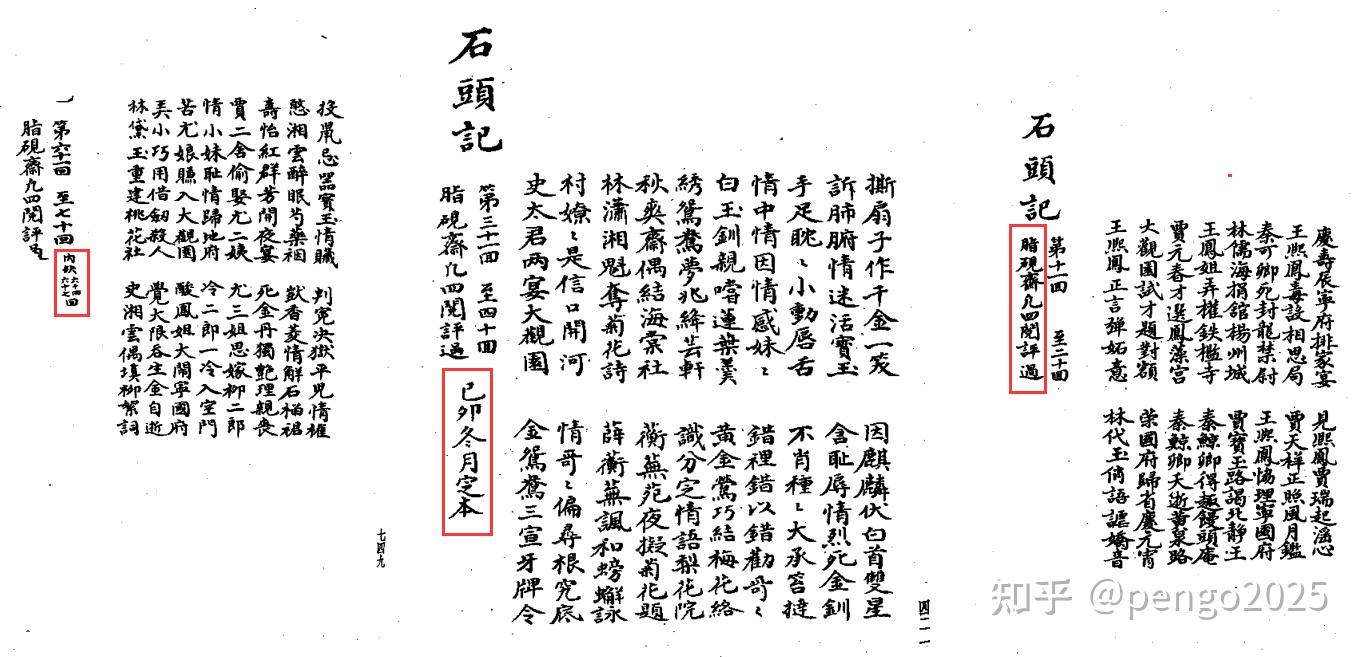 石頭記
慶壽辰寧府排家宴 見熙鳳賈瑞起淫心
王熙鳳毒設相思局 賈天祥正照風月鑑
秦可卿死封龍禁尉 王熙鳳恊理寧國府
林儒海捐館揚州城 賈寶玉路謁北靜王
王鳳姐弄權鉄檻寺 秦鯨卿得趣饅頭庵
賈元春才選鳳藻宮 秦鯨卿夭逝黃泉路
大觀園試才題對額 榮國府歸省慶元宵
王熙鳳正言弹妬意 林代玉俏語謔嬌音
第十一回 至二十回
脂硯齋凡四閱評過
石頭記
撕扇子作千金一笑 因麒麟伏白首雙星
訴肺腑情迷活寶玉 含耻辱情烈死金釧
手足眈〻小動唇舌 不肖種〻大承笞撻
情中情因情感妹〻 錯裡錯以錯勸哥〻
白玉釧親嚐蓮葉羹 黃金鶯巧結梅花絡
綉鴛鴦夢兆絳芸軒 識分定情語梨花院
秋爽齋偶結海棠社 蘅蕪苑夜擬菊花題
林瀟湘魁奪菊花詩 薛蘅蕪諷和螃蠏詠
村嫽〻是信口開河 情哥〻偏尋根究底
史太君两宴大觀園 金鴛鴦三宣牙牌令
第三十一回 至四十回
脂硯齋凡四閱評過 己卯冬月定本
四二一
投鼠忌器寶玉情贓 判寃决獄平児情權
憨湘雲醉眠芍藥裀 獃香菱情解石榴裙
壽怡紅群芳開夜宴 死金丹獨艶理親喪
賈二舍偷娶尤二姨 尤三姐思嫁柳二郎
情小妹耻情歸地府 冷二郎一冷入空門
苦尤娘賺入大觀園 酸鳳姐大鬧寧國府
美小巧用借劍殺人 覺大限吞生金自逝
林黛玉重建桃花社 史湘雲偶填柳絮詞
第六十一回 至七十回 内缺六十四六十七回
脂硯齋凡四閱評過
七四九
知乎 @pengo2025